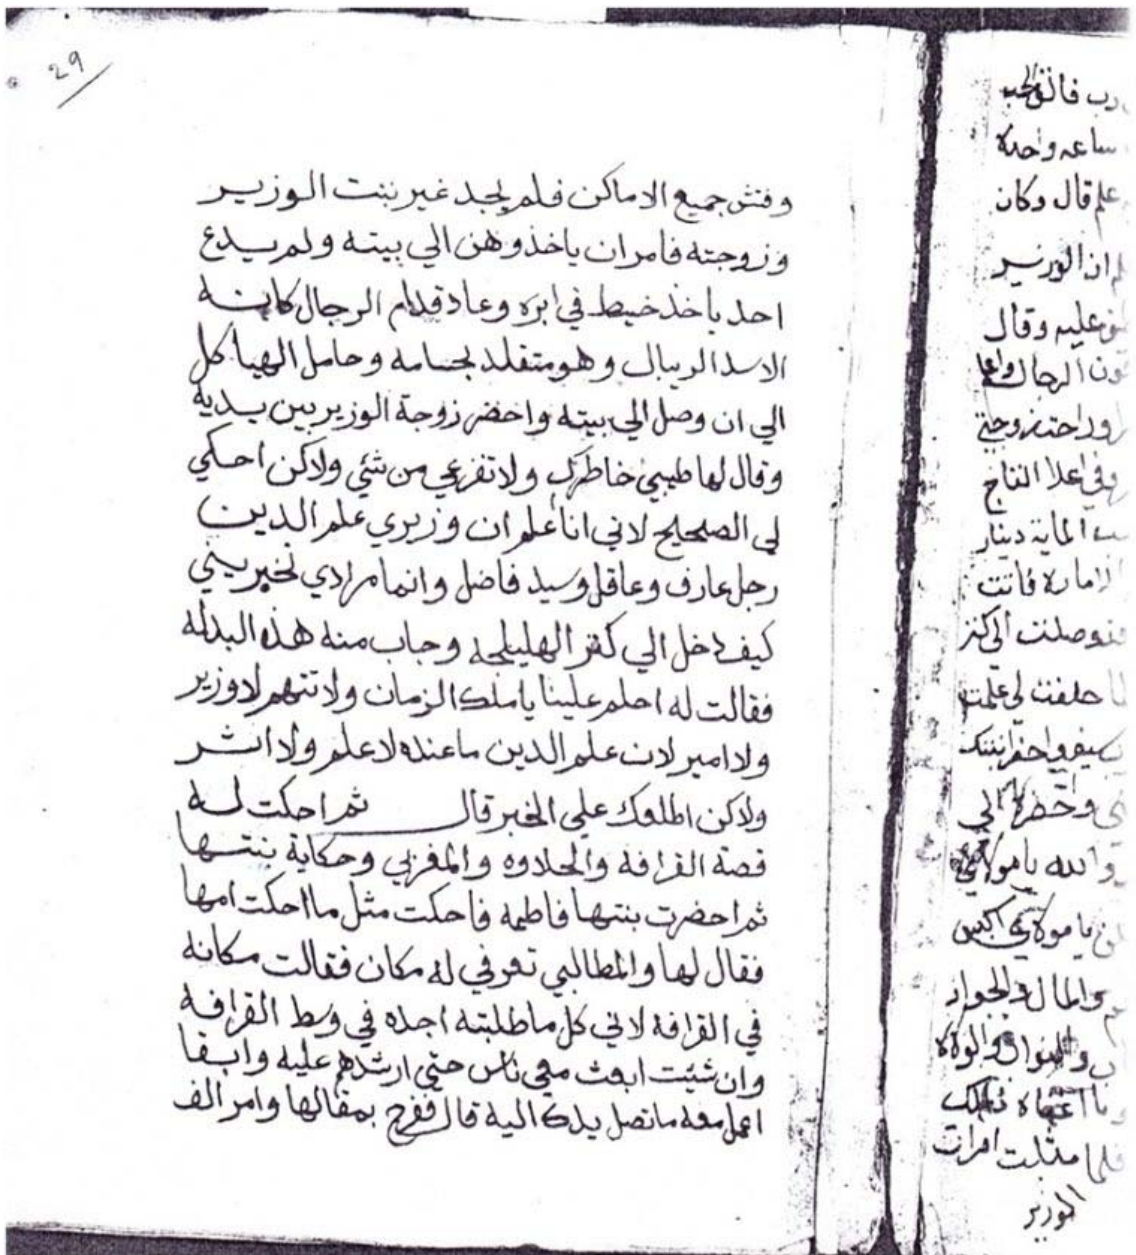 29
وفتش جميع الاماكن فلم يجد غير بنت الوزير
وزوجته فامر ان ياخذوهن الي بيته ولم يدع
احد ياخذ خيط في ابره وعاد قدام الرجال كانه
الاسد الريبال وهو متقلد بحسامه وحامل الهياكل
الي ان وصل الي بيته واحضر زوجة الوزير بين يديه
وقال لها طيبي خاطرك ولا تفزعي من شئي ولاكن احكي
لي الصحيح لاني انا اعلم ان وزيري علم الدين
رجل عارف وعاقل وسيد فاضل وانما مرادي تخبريني
كيف دخل الي كنز الهليلجه وجاب منه هذه البدله
فقالت له احلم علينا يا ملك الزمان ولا تتهم لا وزير
ولا امير لان علم الدين ما عنده لا علم ولا اثر
ولاكن اطلعك علي الخبر قال ثم احكت له
قصة القرافة والحلاوه والمغربي وحكاية بنتها
ثم احضرت بنتها فاطمه فاحكت مثل ما احكت امها
فقال لها والمطالبي تعرفي له مكان فقالت مكانه
في القرافة لاني كل ما طلبته اجده في وسط القرافه
وان شئت ابعث معي ناس حتي ارشدهم عليه وابقا
اعمل معه ما تصل يدك اليه قال ففرح بمقالها وامر الف
رب فانفتح
ساعه واحده
علم قال وكان
ان الوزير
عليه وقال
الرجال
وراحت زوجتي
في اعلا التاج
الماية دينار
الاماره فانت
وصلت الي كنز
حلفت لي علمت
واحضر بنتك
واحضرها الي
والله يا مولاي
يا مولاي اكبس
والمال والجوار
والنوال والولاه
فلما مثلت امرات
الوزير